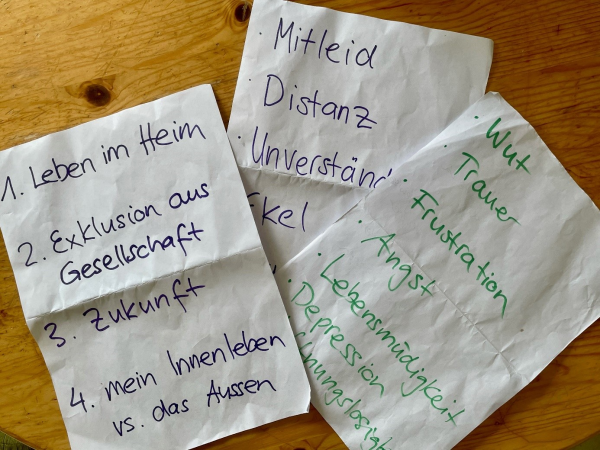 1. Leben im Heim
2. Exklusion aus
Gesellschaft
3. Zukunft
4. mein Innenleben
vs. das Aussen
· Mitleid
· Distanz
· Unverständ
Ekel
· Wut
· Trauer
· Frustration
· Angst
· Lebensmüdigkeit
· Depression